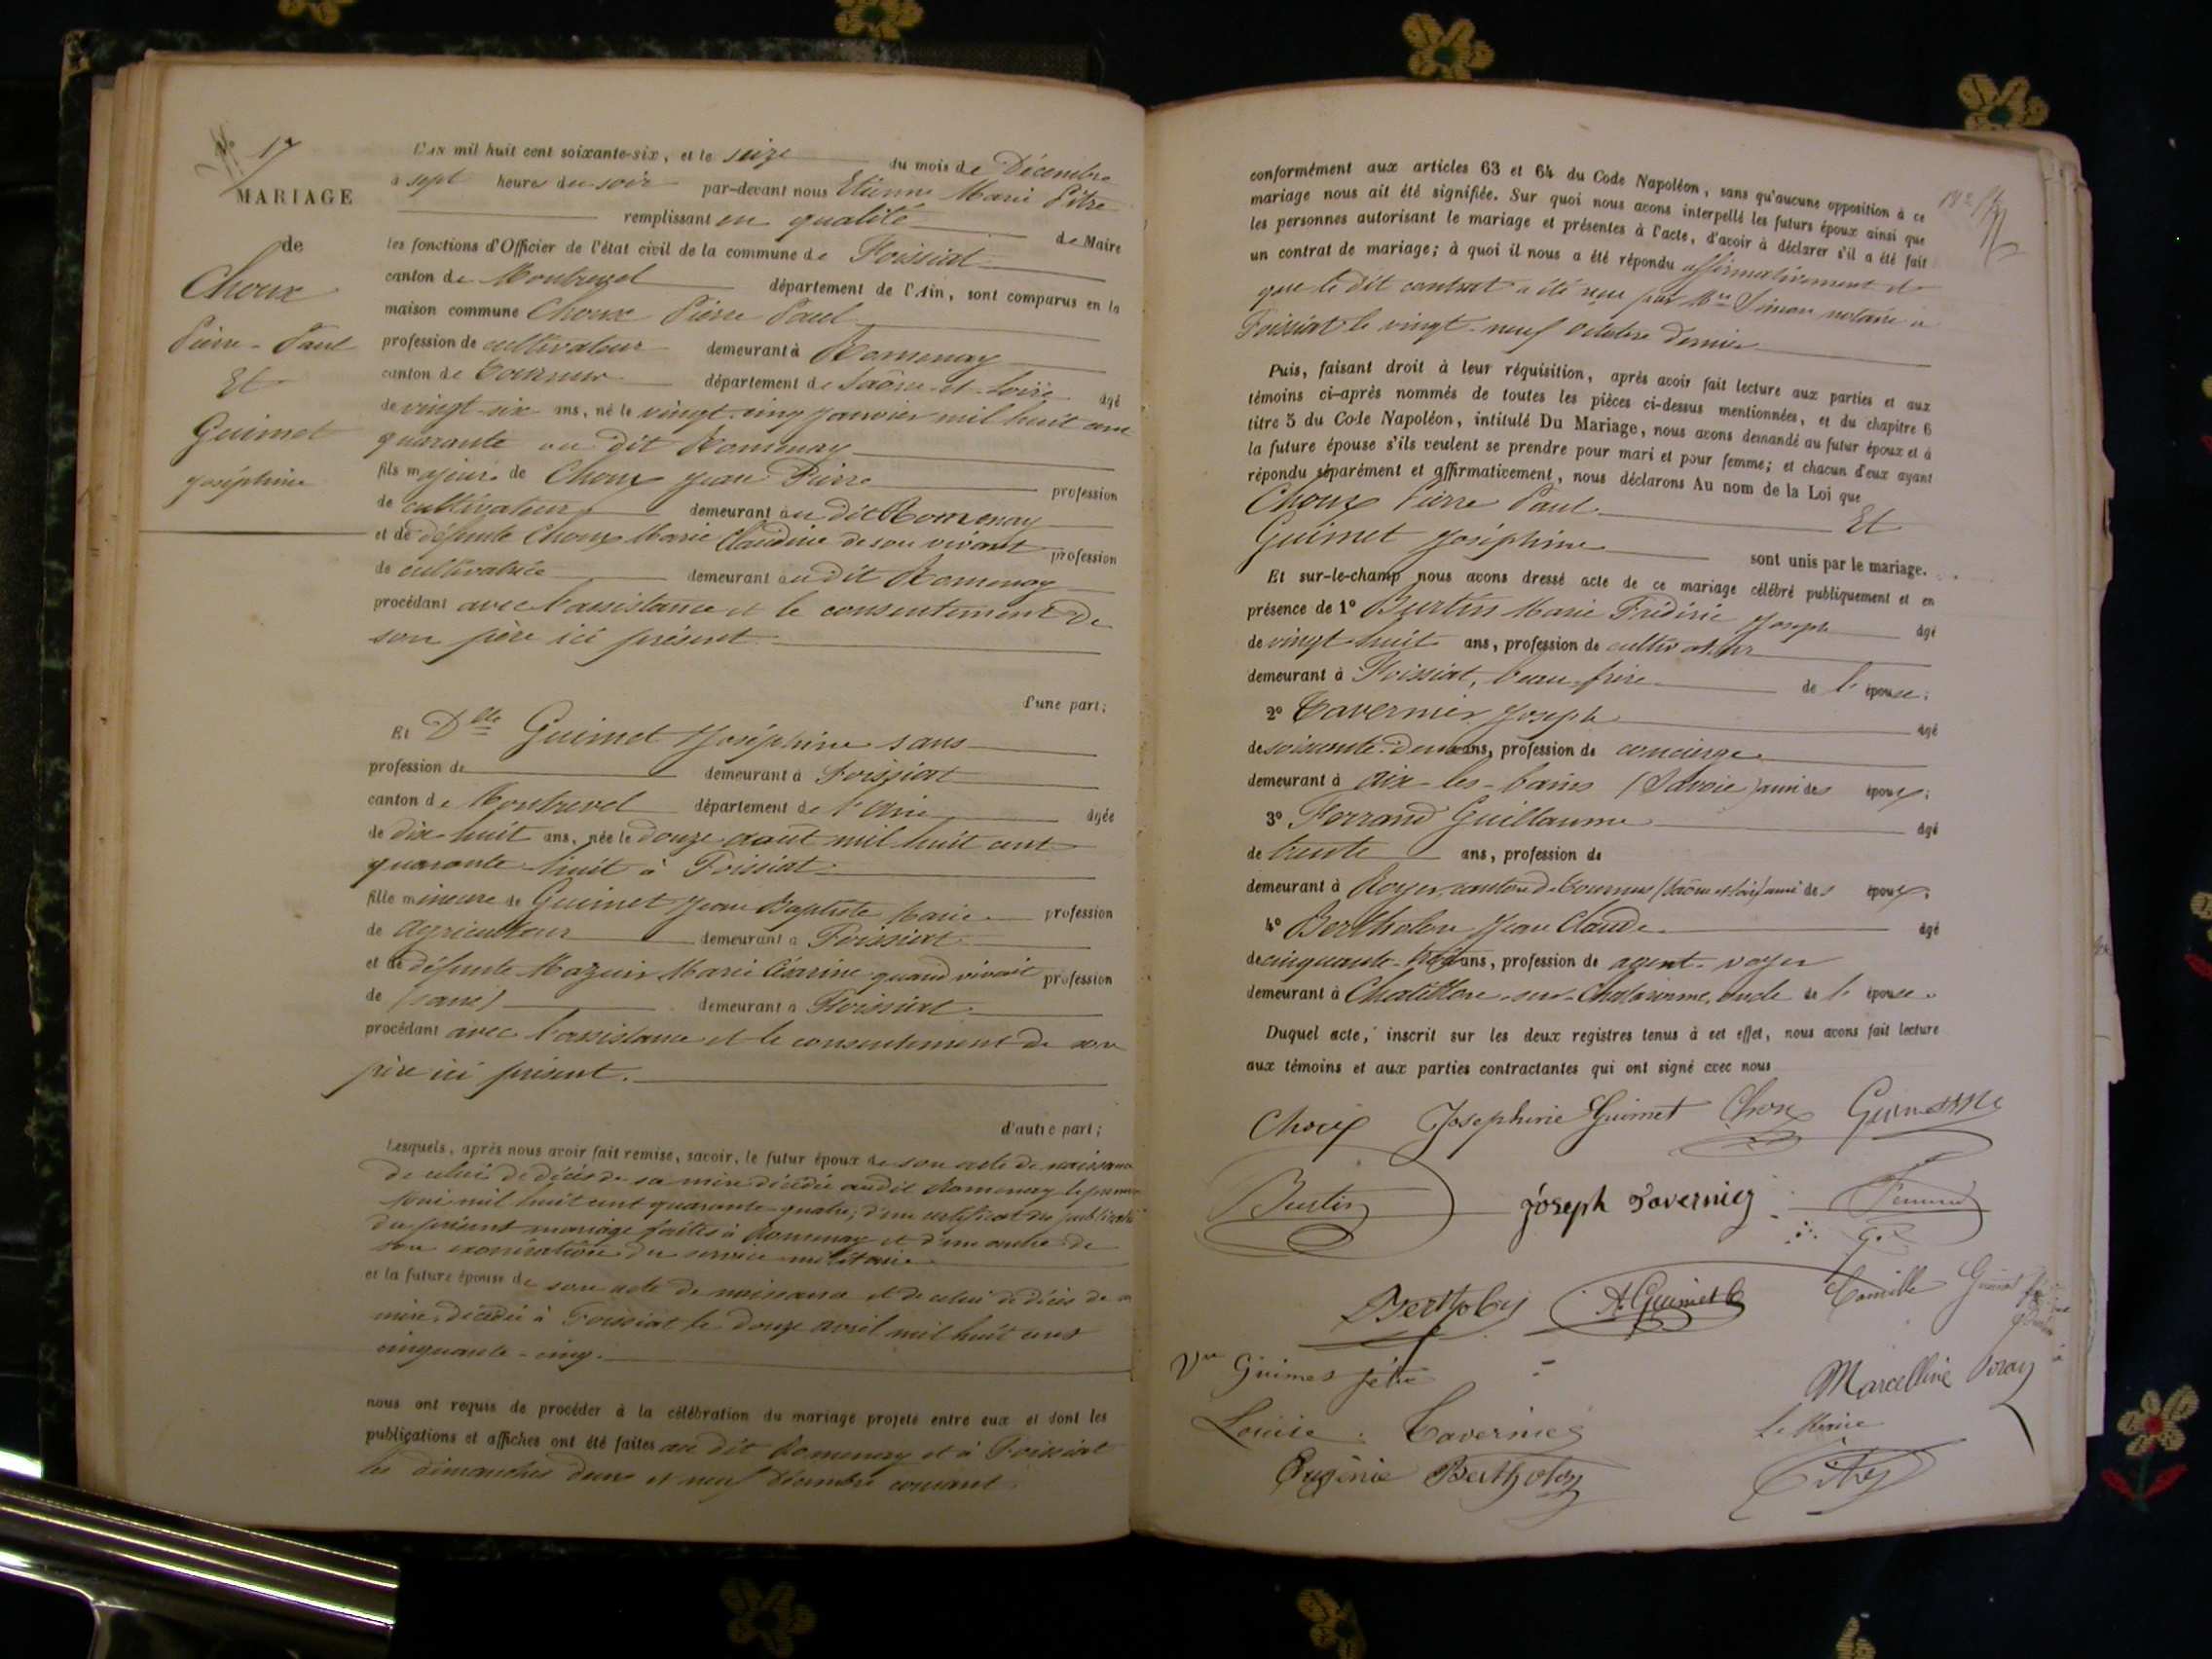 N° 17
MARIAGE
de
Choux
Pierre-Paul
Et
Guimet
Joséphine
L'AN mil huit cent soixante-six, et le seize du mois de Décembre
à sept heures du soir par-devant nous Etienne Marie Pitre
remplissant en qualité de Maire
les fonctions d'Officier de l'état civil de la commune de Foissiat
canton de Montrevel département de l'Ain, sont comparus en la
maison commune Choux Pierre Paul
profession de cultivateur demeurant à Romenay
canton de Tournus département de Saône-et-Loire âgé
de vingt-six ans, né le vingt-cinq janvier mil huit cent
quarante au dit Romenay
fils majeur de Choux Jean Pierre profession
de cultivateur demeurant au dit Romenay
et de défunte Choux Marie Claudine de son vivant profession
de cultivatrice demeurant au dit Romenay
procédant avec l'assistance et le consentement de
son père ici présent
d'une part;
Et Dlle Guimet Joséphine sans
profession de demeurant à Foissiat
canton de Montrevel département de l'Ain âgée
de dix-huit ans, née le douze août mil huit cent
quarante-huit à Foissiat
fille mineure de Guimet Jean Baptiste Marie profession
de agriculteur demeurant à Foissiat
et de défunte Mazuir Marie Césarine quand vivait profession
de (sans) demeurant à Foissiat
procédant avec l'assistance et le consentement de son
père ici présent.
d'autre part;
Lesquels, après nous avoir fait remise, savoir, le futur époux de son acte de naissance
de celui de décès de sa mère décédée audit Romenay le
mil huit cent quarante-quatre; d'un certificat de
du présent mariage faites à Romenay et d'un autre de
son exonération du service militaire
et la future épouse de son acte de naissance et de celui de décès de sa
mère, décédée à Foissiat le douze avril mil huit cent
cinquante-cinq.
nous ont requis de procéder à la célébration du mariage projeté entre eux et dont les
publications et affiches ont été faites au dit Romenay et à Foissiat
les dimanches deux et neuf décembre courant
conformément aux articles 63 et 64 du Code Napoléon, sans qu'aucune opposition à ce
mariage nous ait été signifiée. Sur quoi nous avons interpellé les futurs époux ainsi que
les personnes autorisant le mariage et présentes à l'acte, d'avoir à déclarer s'il a été fait
un contrat de mariage; à quoi il nous a été répondu affirmativement et
que le dit contrat a été reçu par Me Simon notaire à
Foissiat le vingt-neuf octobre dernier
Puis, faisant droit à leur réquisition, après avoir fait lecture aux parties et aux
témoins ci-après nommés de toutes les pièces ci-dessus mentionnées, et du chapitre 6
titre 5 du Code Napoléon, intitulé Du Mariage, nous avons demandé au futur époux et à
la future épouse s'ils veulent se prendre pour mari et pour femme; et chacun d'eux ayant
répondu séparément et affirmativement, nous déclarons Au nom de la Loi que
Choux Pierre Paul Et
Guimet Joséphine sont unis par le mariage.
Et sur-le-champ nous avons dressé acte de ce mariage célébré publiquement et en
présence de 1° Burtin Marie Frédéric Joseph âgé
de vingt-huit ans, profession de cultivateur
demeurant à Foissiat, beau-frère de l'épouse;
2° Tavernier Joseph âgé
de soixante-deux ans, profession de concierge
demeurant à Aix-les-bains (Savoie) ami des époux;
3° Ferrand Guillaume âgé
de trente ans, profession de
demeurant à Royer, canton de Tournus (Saône et Loire) ami des époux;
4° Bertholon Jean Claude âgé
de cinquante-trois ans, profession de agent-voyer
demeurant à Chatillon-sur-Chalaronne, oncle de l'épouse.
Duquel acte, inscrit sur les deux registres tenus à cet effet, nous avons fait lecture
aux témoins et aux parties contractantes qui ont signé avec nous
Choux Josephine Guimet Choux Guimet
Burtin Joseph Tavernier Ferrand
G.
Bertholon A. Guimet Camille Guimet
Vve Guimet
Marcelline
Louise Tavernier Le Maire
Eugénie Bertholon Pitre